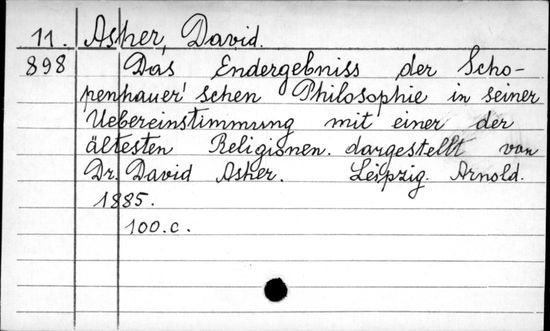 11. Asher, David.
898 Das Endergebniss der Scho-
penhauer'schen Philosophie in seiner
Uebereinstimmung mit einer der
ältesten Religionen. dargestellt von
Dr. David Asher. Leipzig. Arnold.
1885.
100.c.